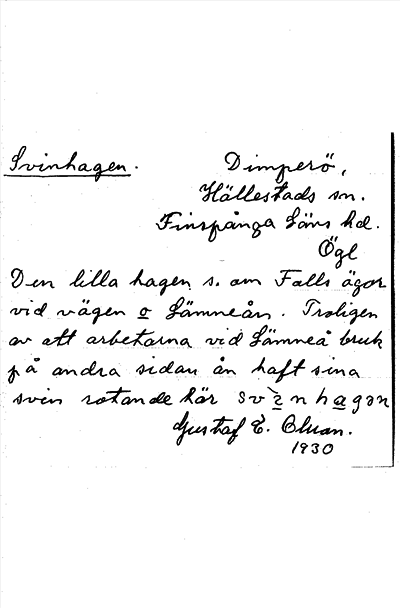 Svinhagen.
Dimperö,
Hällestads sn.
Finspånga läns hd.
Ögl
Den lilla hagen s. om Falls ägor
vid vägen o Lämneån. Troligen
av att arbetarna vid Lämneå bruk
på andra sidan ån haft sina
svin rotande här
Gustaf E.
1930